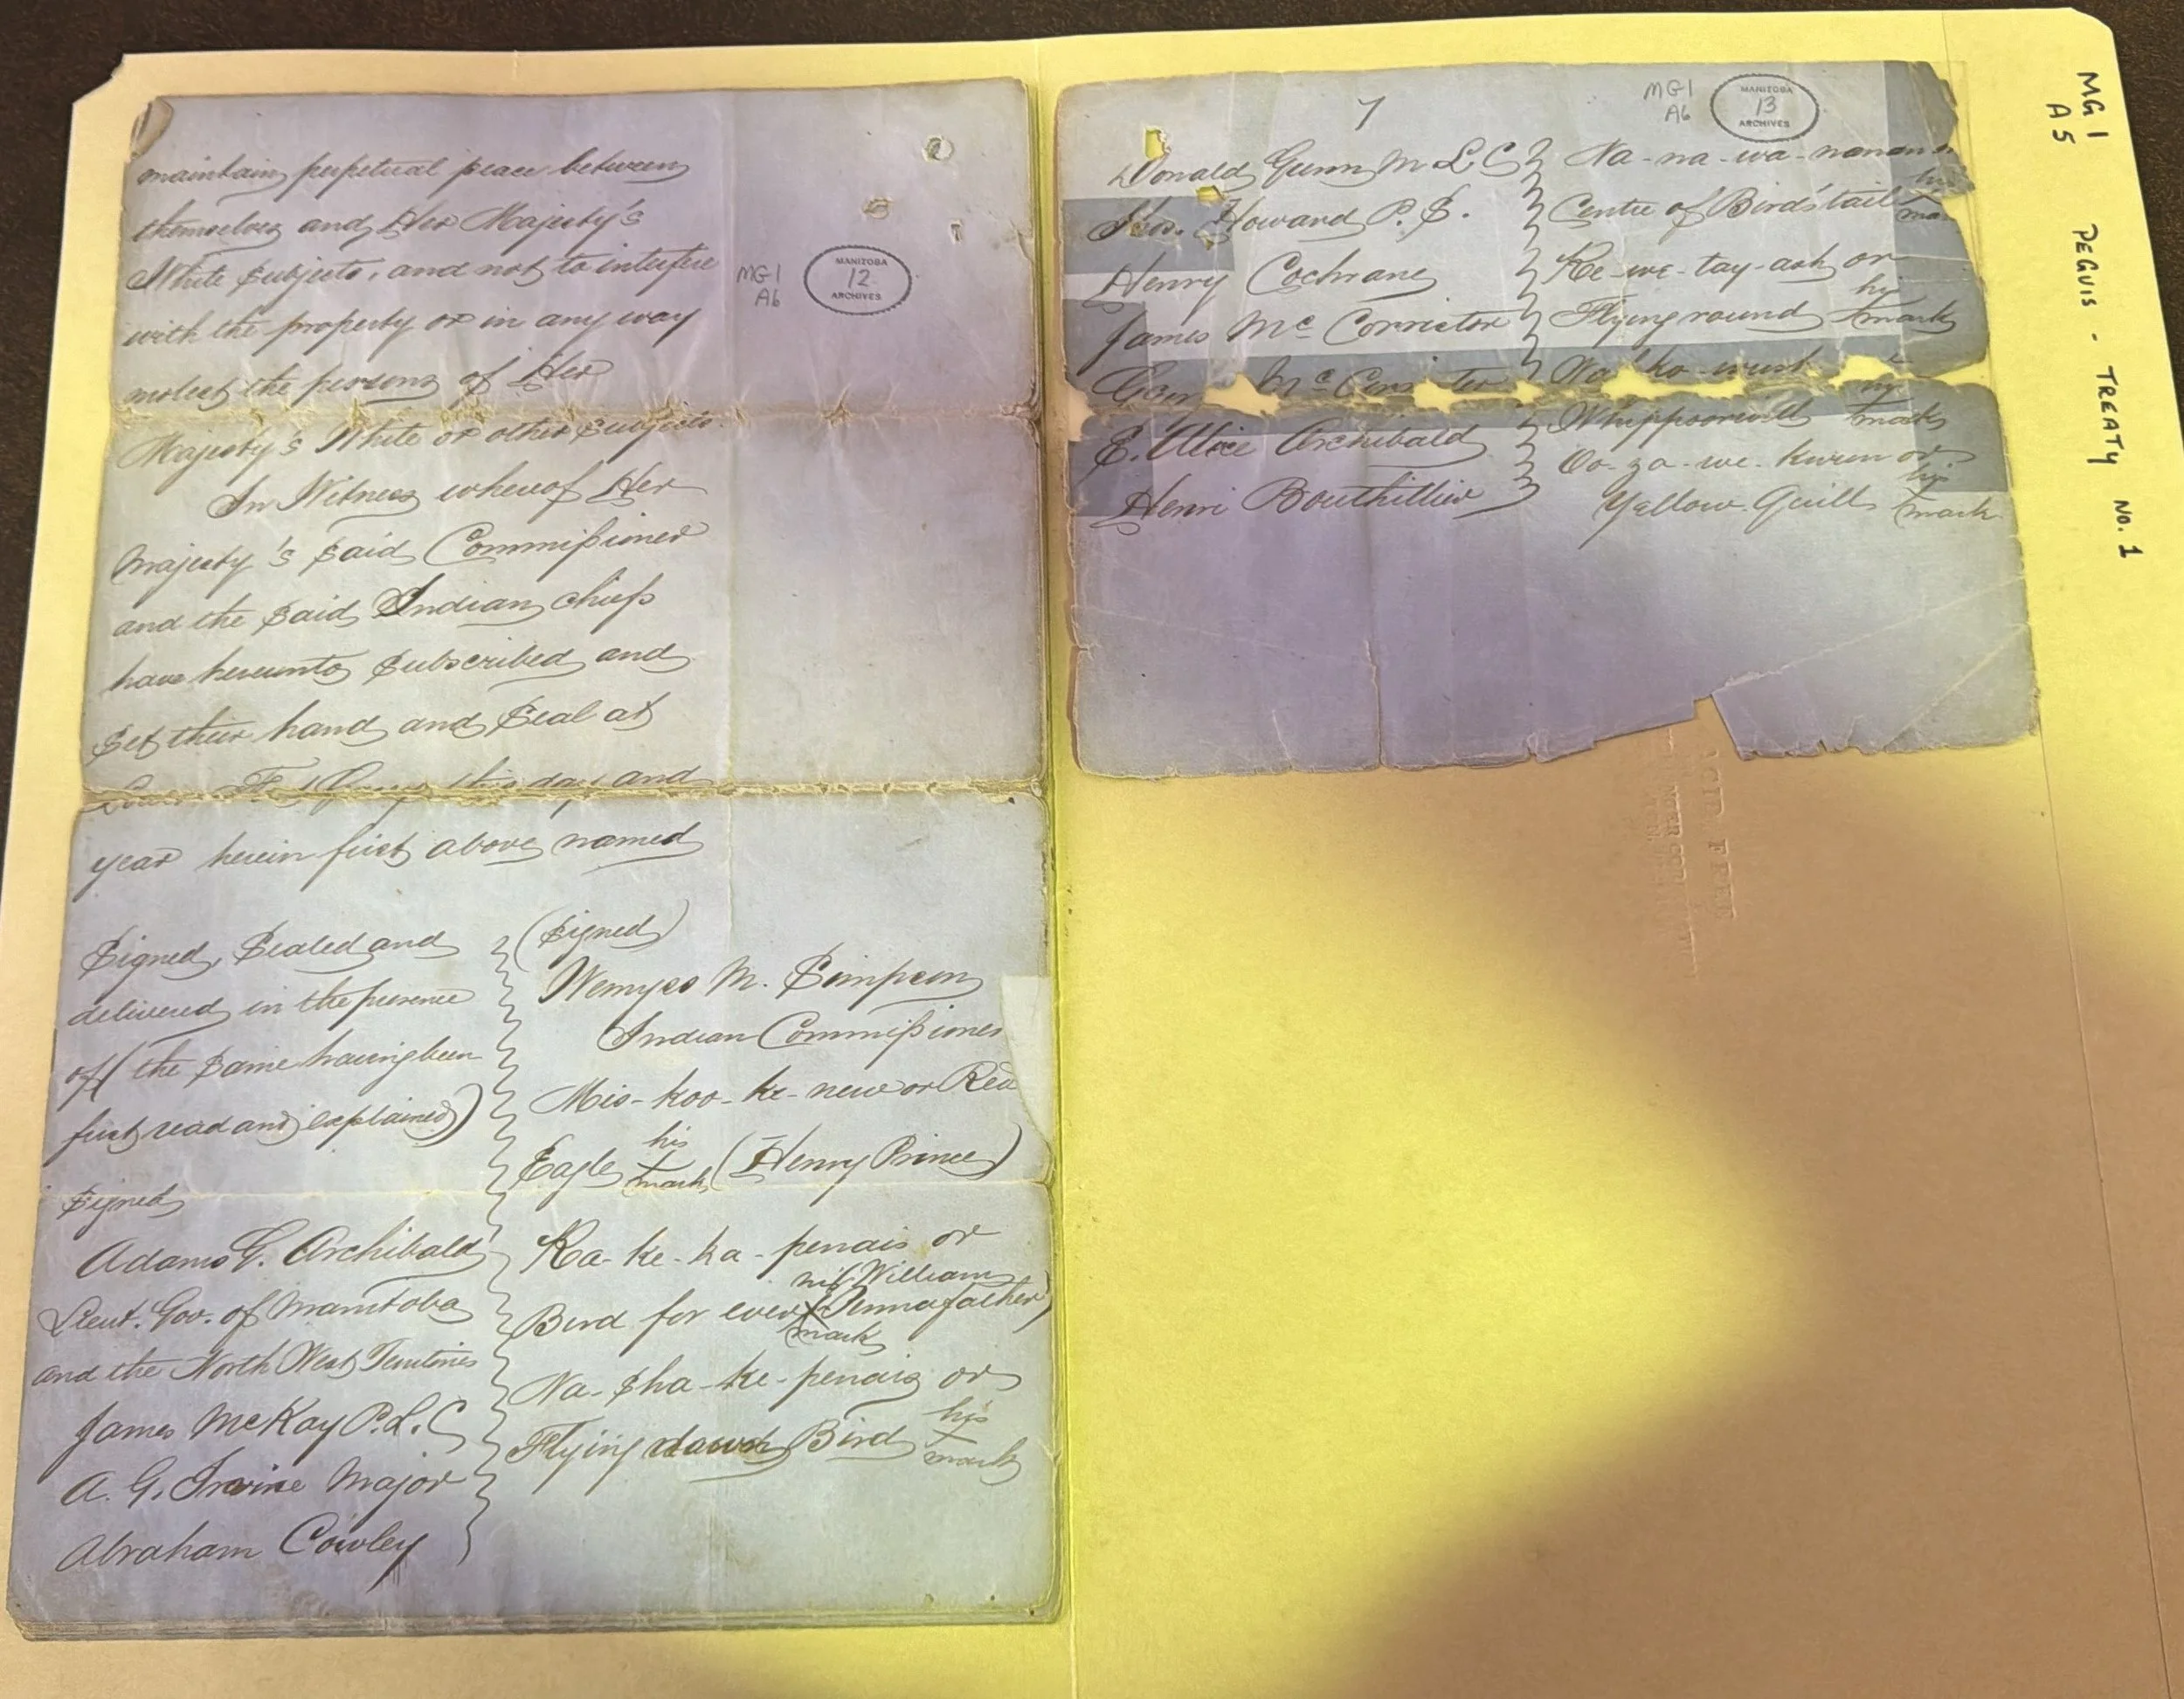 maintain perpetual peace between
themselves and Her Majesty's
White Subjects, and not to interfere
with the property or in any way
molest the persons of Her
Majesty's White or other Subjects.
In Witness whereof Her
Majesty's Said Commissioner
and the Said Indian Chiefs
have hereunto Subscribed and
Set their hand and Seal at
this day and
year herein first above named
MG1
A6
MANITOBA
12
ARCHIVES
Signed, Sealed and
delivered in the presence
of (the Same having been
first read and explained)
Signed
Adams G. Archibald
Lieut. Gov. of Manitoba
and the North West Territories
James McKay P.L.C
A. G. Irvine Major
Abraham Cowley
(Signed)
Wemyss M. Simpson
Indian Commissioner
Mis-koo-ke-new or Red
Eagle his X mark (Henry Prince)
Ka-ke-ka-penais or
Bird for ever his X mark (William Pennafather)
Na-Sha-ke-penais or
Flying down Bird his X mark
7
MG1
A6
MANITOBA
13
ARCHIVES
Donald Gunn M L C
Thos. Howard P. S.
Henry Cochrane
James Mc Corrister
Mc Corrister
E. Alice Archibald
Henri Bouthillier
Na-na-wa-nanan
Centre of Bird's tail
Ke-we-tay-ash or
Flying round his X mark
Wa-ko-wush
Whippoorwill X mark
Oo-za-we-kwun or
Yellow Quill his mark
MG1
A5
PEGUIS - TREATY NO. 1
ACID FREE